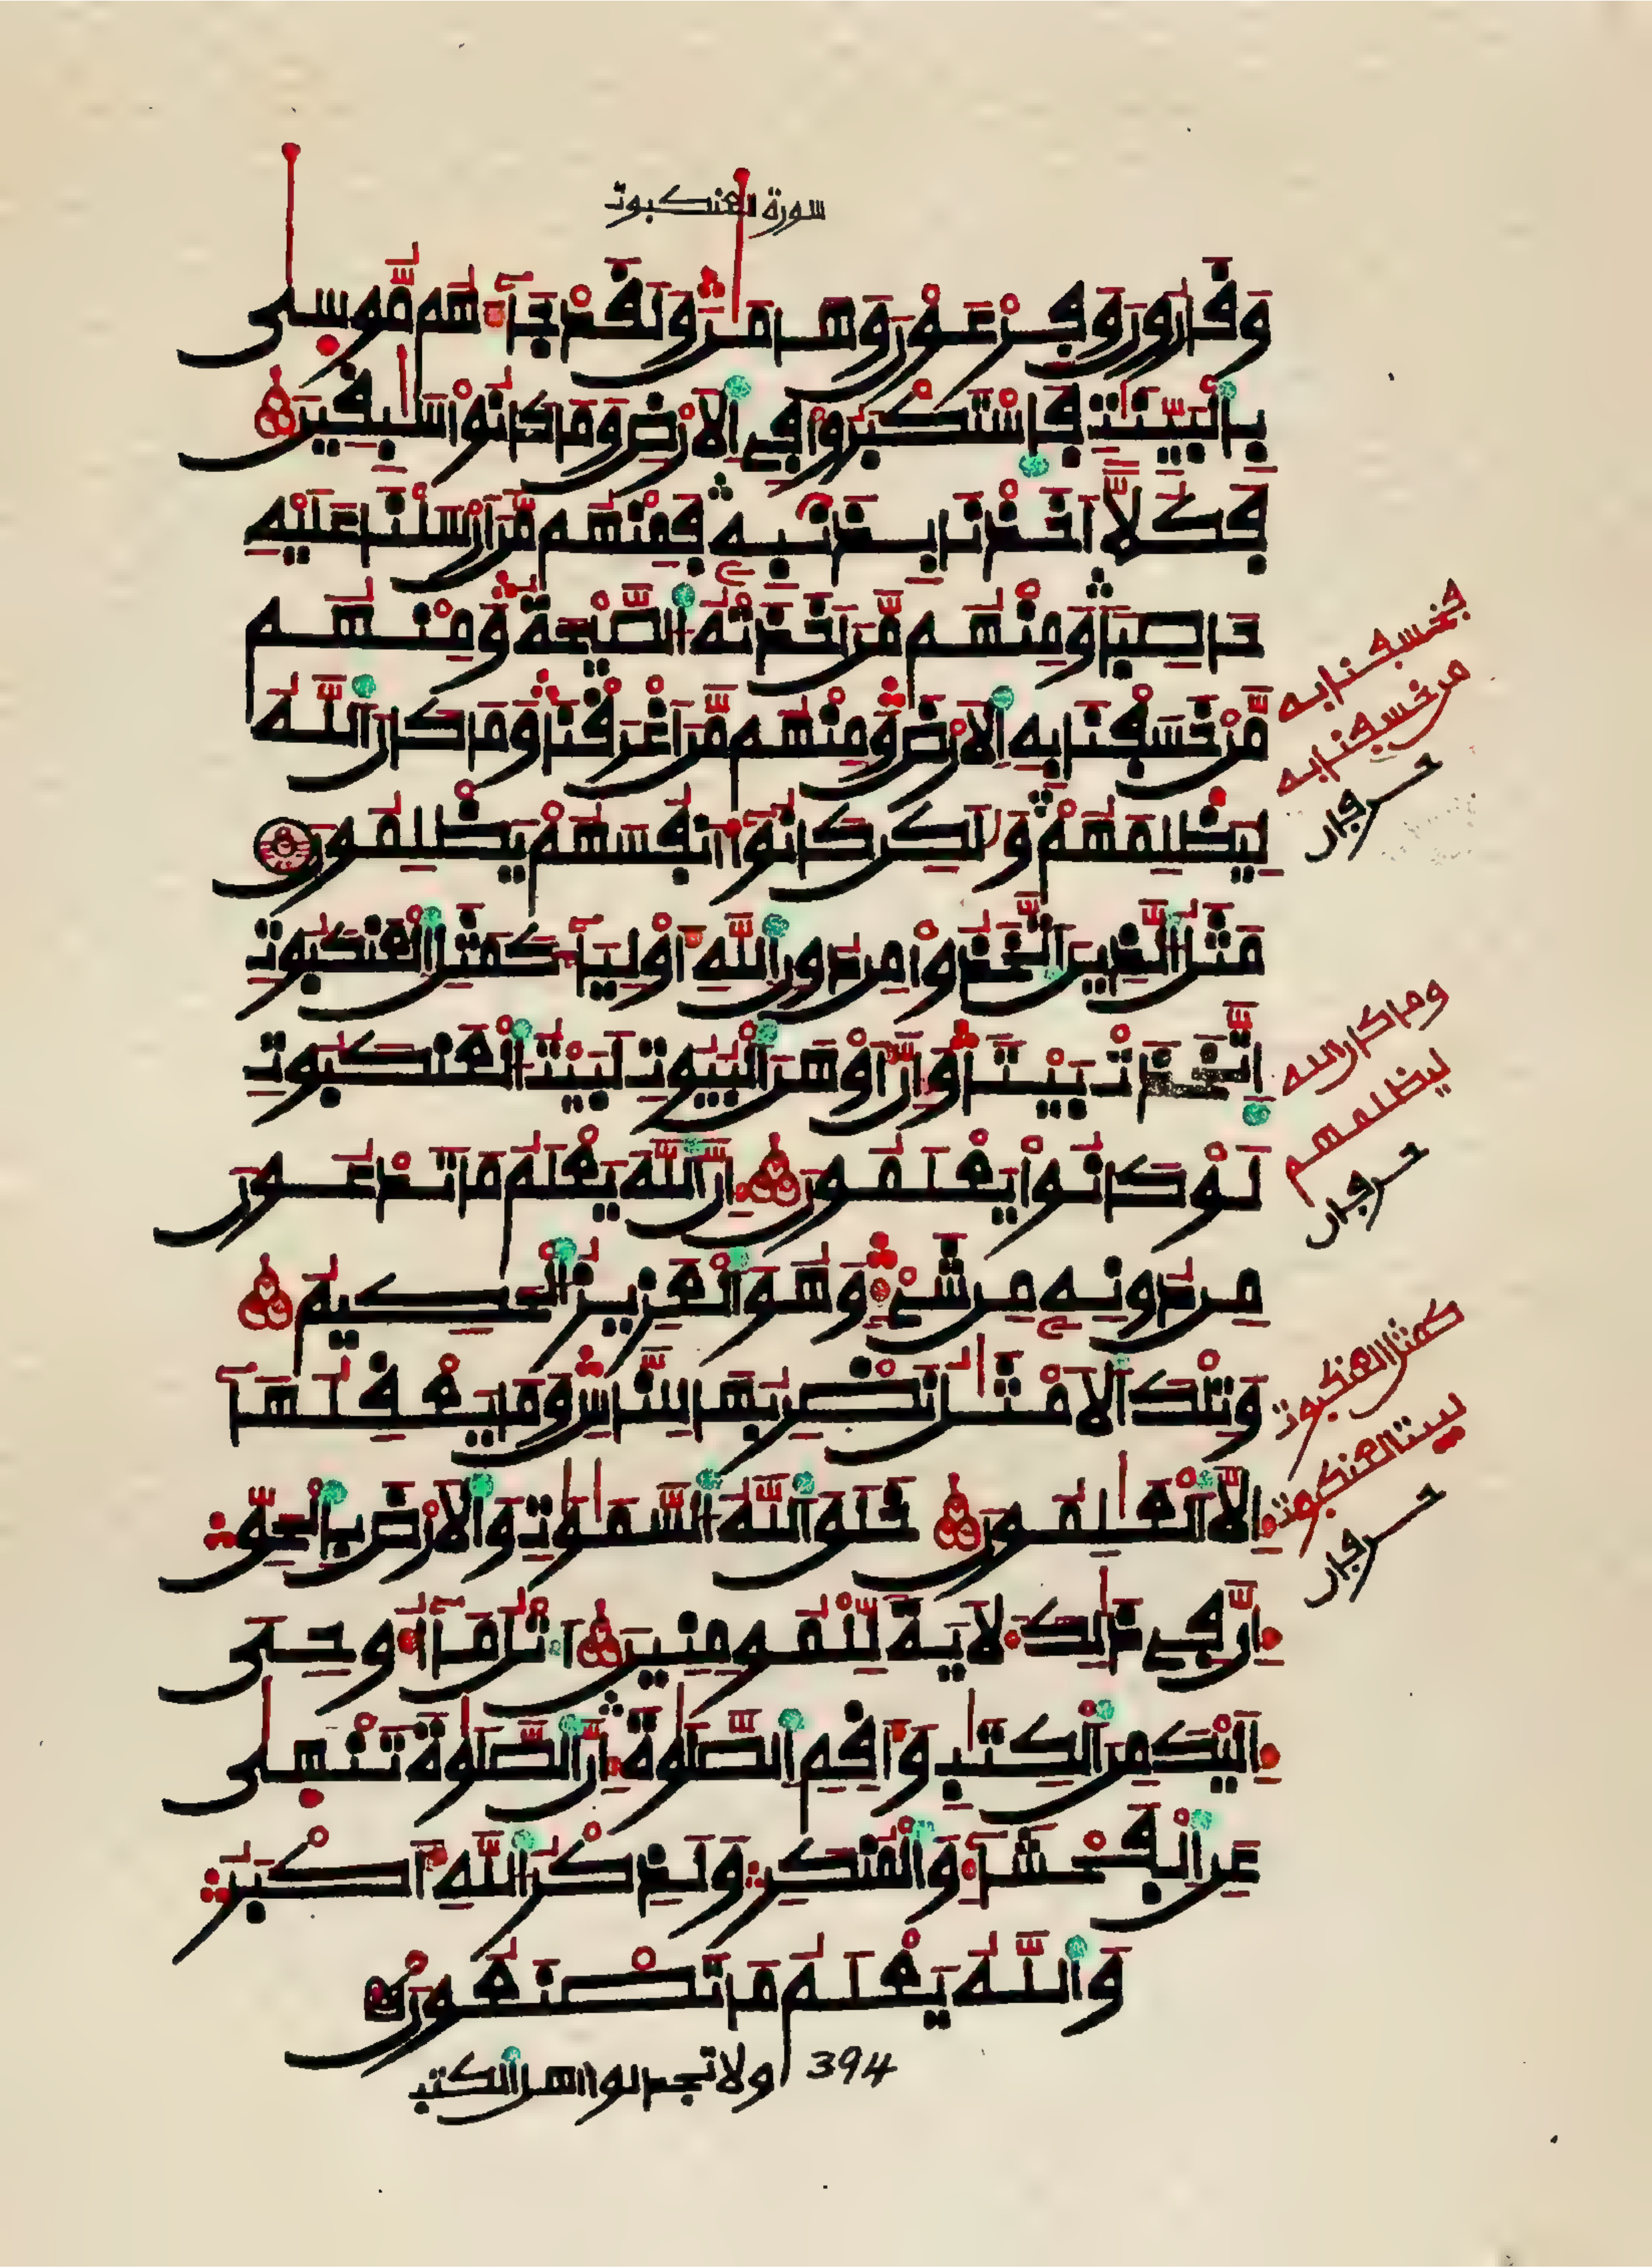 سورة العنكبوت
وَقَٰرُونَ وَفِرْعَوْنَ وَهَٰمَٰنَ وَلَقَدْ جَآءَهُم مُّوسَىٰ
بِالْبَيِّنَٰتِ فَاسْتَكْبَرُوا فِي الَارْضِ وَمَا كَانُوا سَٰبِقِينَ
فَكُلّاً اَخَذْنَا بِذَنۢبِهِ فَمِنْهُم مَّنَ اَرْسَلْنَا عَلَيْهِ
حَاصِباً وَمِنْهُم مَّنَ اَخَذَتْهُ الصَّيْحَةُ وَمِنْهُم
مَّنْ خَسَفْنَا بِهِ الَارْضَ وَمِنْهُم مَّنَ اَغْرَقْنَا وَمَا كَانَ اللَّهُ
لِيَظْلِمَهُمْ وَلَٰكِن كَانُوا أَنفُسَهُمْ يَظْلِمُونَ
مَثَلُ الَّذِينَ اتَّخَذُوا مِن دُونِ اللَّهِ أَوْلِيَآءَ كَمَثَلِ الْعَنكَبُوتِ
اِتَّخَذَتْ بَيْتاً وَإِنَّ أَوْهَنَ الْبُيُوتِ لَبَيْتُ الْعَنكَبُوتِ
لَوْ كَانُوا يَعْلَمُونَ إِنَّ اللَّهَ يَعْلَمُ مَا تَدْعُونَ
مِن دُونِهِ مِن شَيْءٍ وَهُوَ الْعَزِيزُ الْحَكِيمُ
وَتِلْكَ الَامْثَٰلُ نَضْرِبُهَا لِلنَّاسِ وَمَا يَعْقِلُهَآ
إِلَّا الْعَٰلِمُونَ خَلَقَ اللَّهُ السَّمَٰوَٰتِ وَالَارْضَ بِالْحَقِّ
إِنَّ فِي ذَٰلِكَ لَأيَةً لِّلْمُومِنِينَ اتْلُ مَآ أُوحِيَ
إِلَيْكَ مِنَ الْكِتَٰبِ وَأَقِمِ الصَّلَوٰةَ إِنَّ الصَّلَوٰةَ تَنْهَىٰ
عَنِ الْفَحْشَآءِ وَالْمُنكَرِ وَلَذِكْرُ اللَّهِ أَكْبَرُ
وَاللَّهُ يَعْلَمُ مَا تَصْنَعُونَ
394 ولا تجدلوا اهل الكتب
فخسفنا به
من خسفنا به
حرفان
وما كان الله
ليظلمهم
حرفان
كمثل العنكبوت
لبيت العنكبوت
حرفان